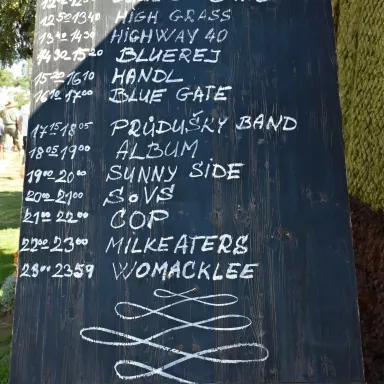 12⁵⁰ 13⁴⁰ HIGH GRASS
13⁴⁰ 14³⁰ HIGHWAY 40
14³⁰ 15²⁰ BLUEREJ
15²⁰ 16¹⁰ HANDL
16¹⁰ 17⁰⁰ BLUE GATE
17¹⁵ 18⁰⁵ PRŮDUŠKY BAND
18⁰⁵ 19⁰⁰ ALBUM
19⁰⁰ - 20⁰⁰ SUNNY SIDE
20⁰⁰ - 21⁰⁰ SOVS
21⁰⁰ 22⁰⁰ COP
22⁰⁰ - 23⁰⁰ MILKEATERS
23⁰⁰ 23 59 WOMACKLEE